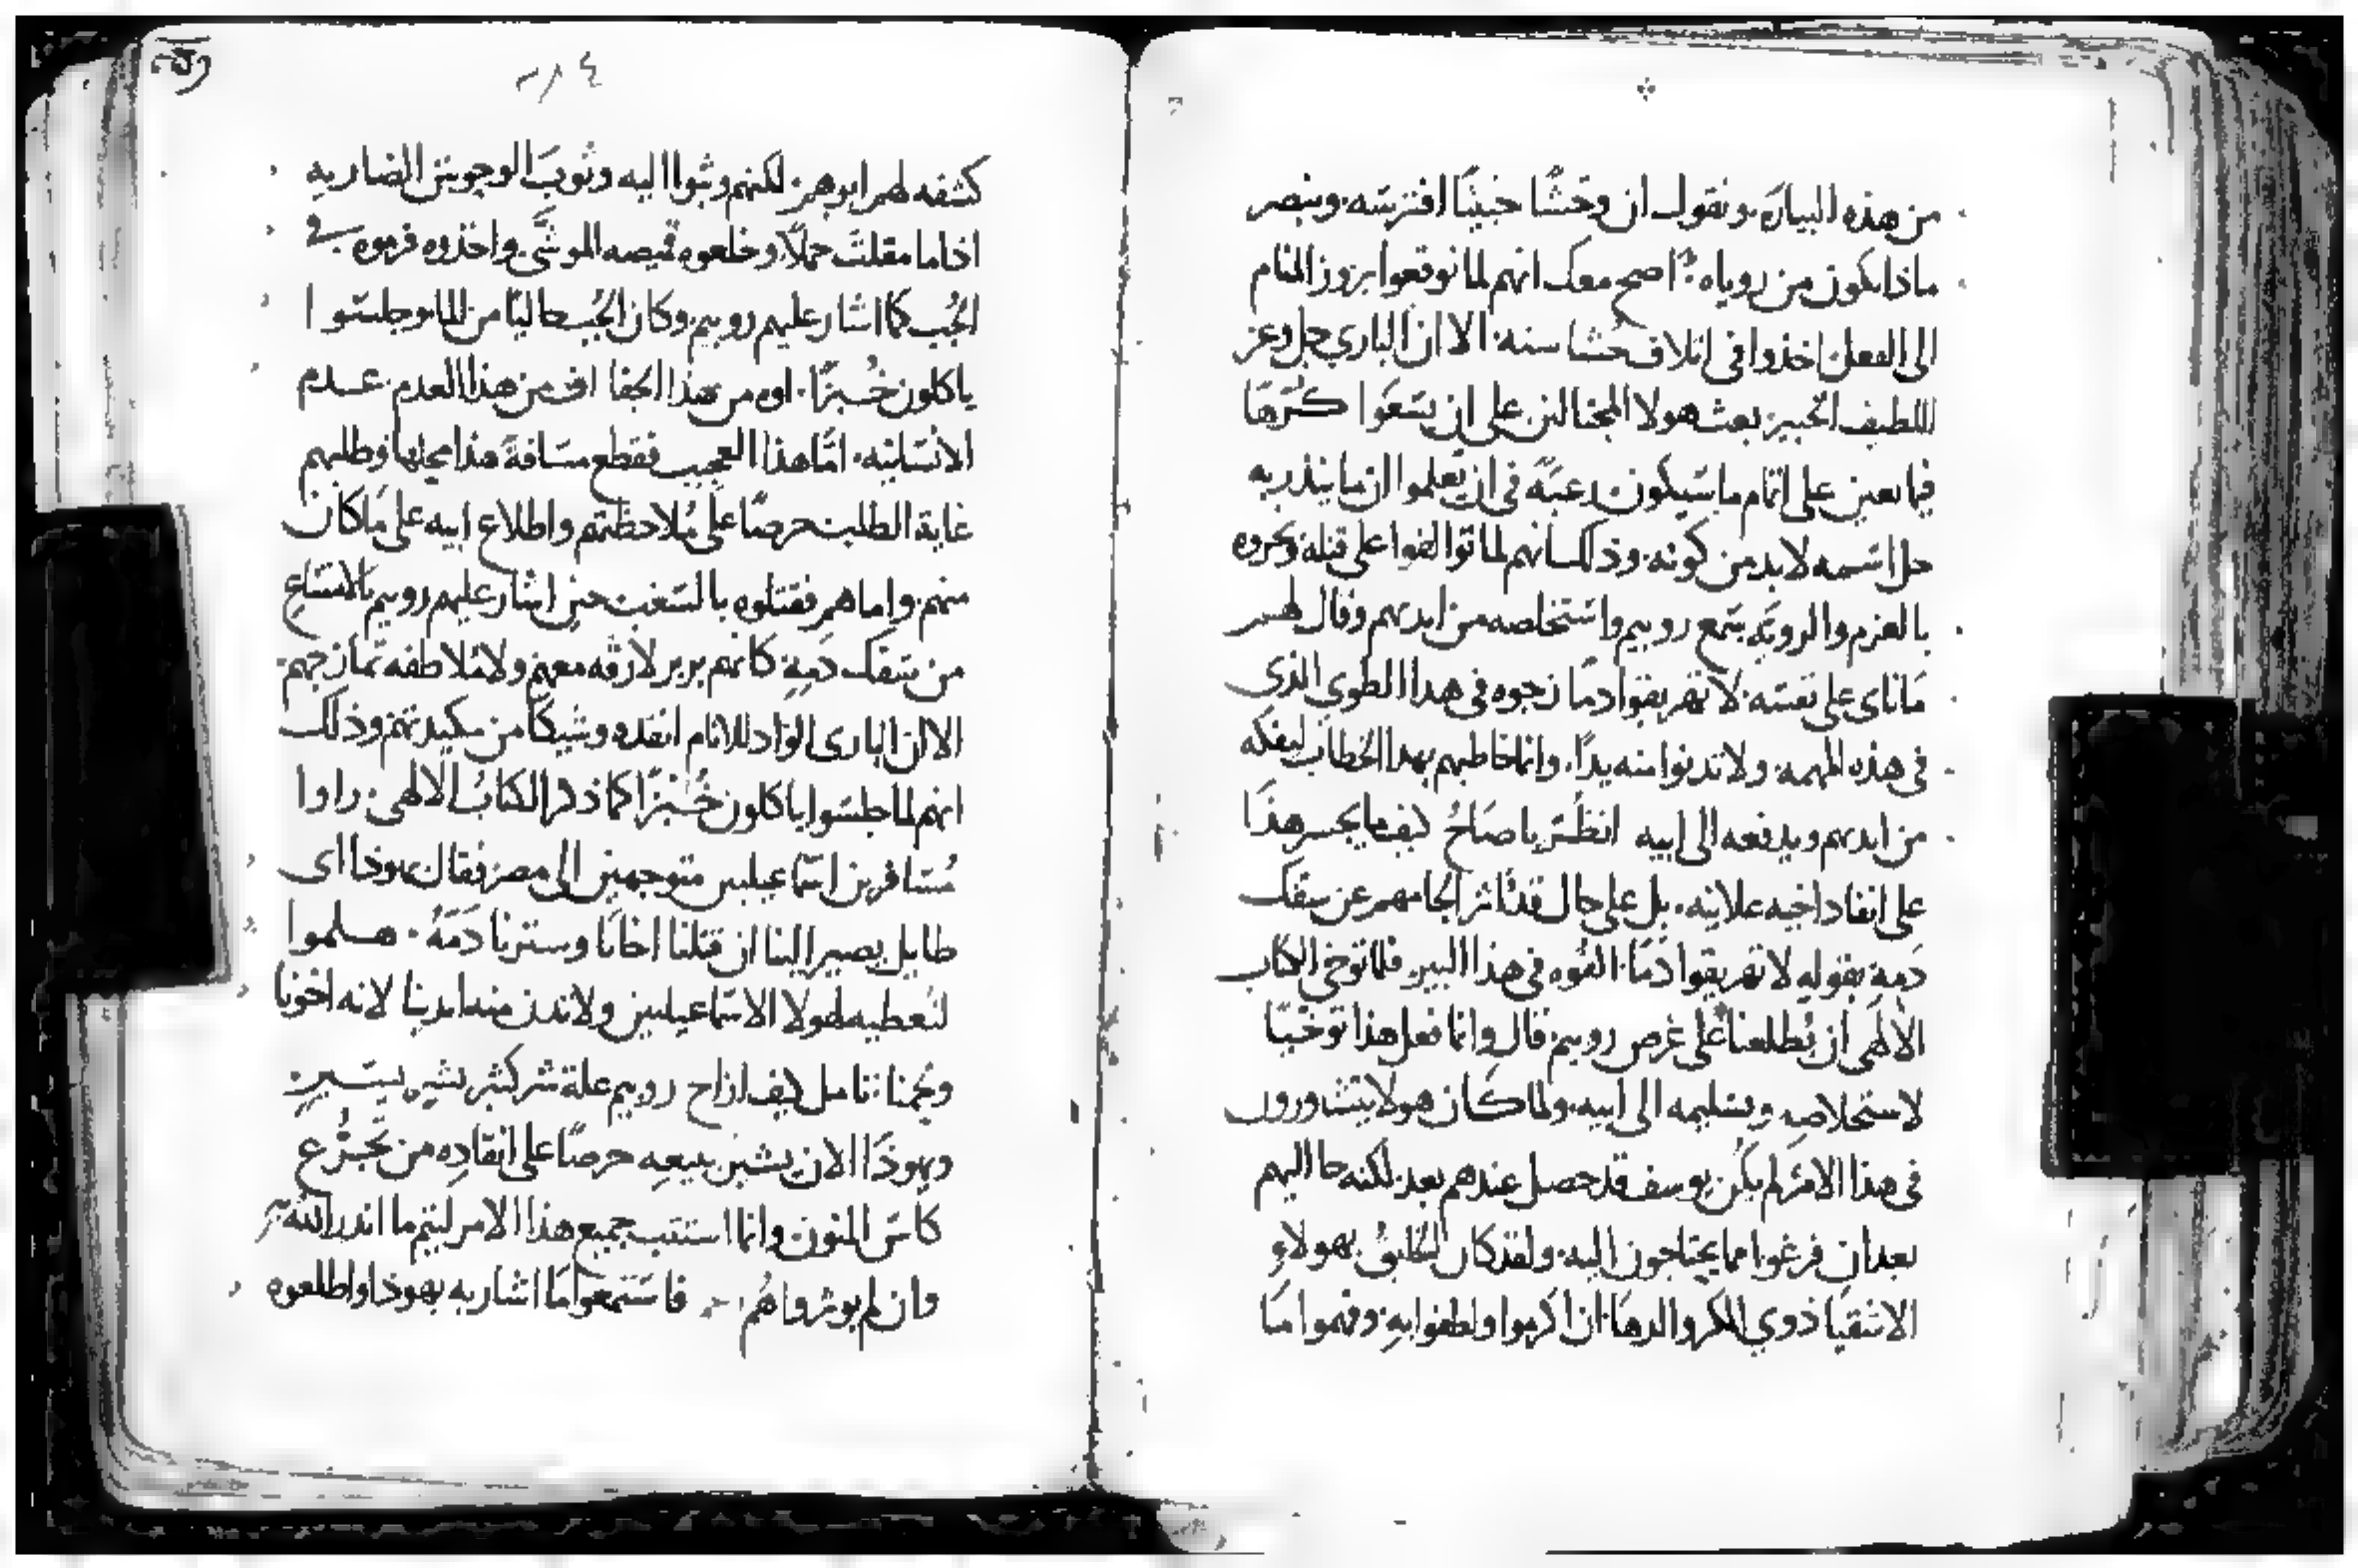 من هذه البياره ونقول ان وحشًا خبيثًا افترسه وننصر
ماذا يكون من روياه اصح معك انهم لما توقعوا بروز المنام
الى الفعل اخذوا في اتلاف حشاسنه الا ان الباري جل وعز
اللطيف الخبير بعث هولا المحتالين على ان يسعوا كرها
فيما يعين على اتمام ما سيكون رغبةً في ان يعلموا ان ما ينذر به
جل اسمه لا بد من كونه وذلك انهم لما توالفوا على قتله ونحروه
بالعزم والرويه سمع روبيم واستخلصه من ايديهم وقال لهم
في هذه المهمه ولا تدنوا منه يدًا وانما خاطبهم بهذا الخطاب ليفكه
من ايديهم ويدفعه الى ابيه انظر يا صاح كيف ما يجسر هذا
على انقاد اخيه علانيه بل على حال قد اثر الجامهم عن سفك
دمه بقوله لا تهريقوا دمًا القوه في هذا البير فلما توخى الكتاب
الالهي ان يطلعنا على غرض روبيم قال وانما فعل هذا توخيًا
لاستخلاصه وتسليمه الى ابيه ولما كان هولا يتشاورون
في هذا الامر لم يكن يوسف قد حصل عندهم بعد لكنه جا اليهم
بعد ان فرغوا مما يحتاجون اليه ولقد كان اللايق بهولاء
الاشقيا ذوي المكر والدها ان اكرموا ولطفوا به وفهموا ما
٢٨٤
كشفه لهم ابوهم لكنهم وثبوا اليه وثوب الوحوش الضاريه
اخا ما مقلتَ حملًا وخلعوه قميصه الموشَّى واخذوه فرموه في
الجُب كما اشار عليهم روبيم وكان الجُب خاليًا من الما وجلسوا
ياكلون خُبزًا اوه من هذا الجفا اف من هذا العدم عدم
الانسانيه امَّا هذا العجيب فقطع مسافةً هذا محلها وطلبهم
غاية الطلب حرصًا على مُلاحظتهم واطلاع ابيه على ما كان
منهم واما هم فقتلوه بالسغب حين اشار عليهم روبيم بالامتناعِ
من سفك دمهِ كانهم بربر لا رقه معهم ولا ملاطفه تمازجهم
الا ان الباري الوادّ للانام انقده وشيكًا من مكيدتهم وذلك
انهم لما جلسوا ياكلون خُبزًا كما ذكر الكتابُ الالهي راوا
مُسافرين اسماعيليين متوجهين الى مصر فقال يهوذا اى
طايل يصير الينا ان قتلنا اخانَا وسترنا دَمَهُ هلموا
لنُعطيه لهولا الاسماعيليين ولا تدن منه ايدينا لانه اخونا
ولحمنا تامل كيف ازاح روبيم علة شر كثير بشرٍ يسيرٍ
ويهوذَا الان يشير ببيعه حرصًا على انقادِه من تَجرُّع
كاس المنون وانما استتب جميع هذا الامر ليتم ما انذر الله به
وان لم يوثروا هُم فاستمعوا ما اشار به يهوذا واطلعوه